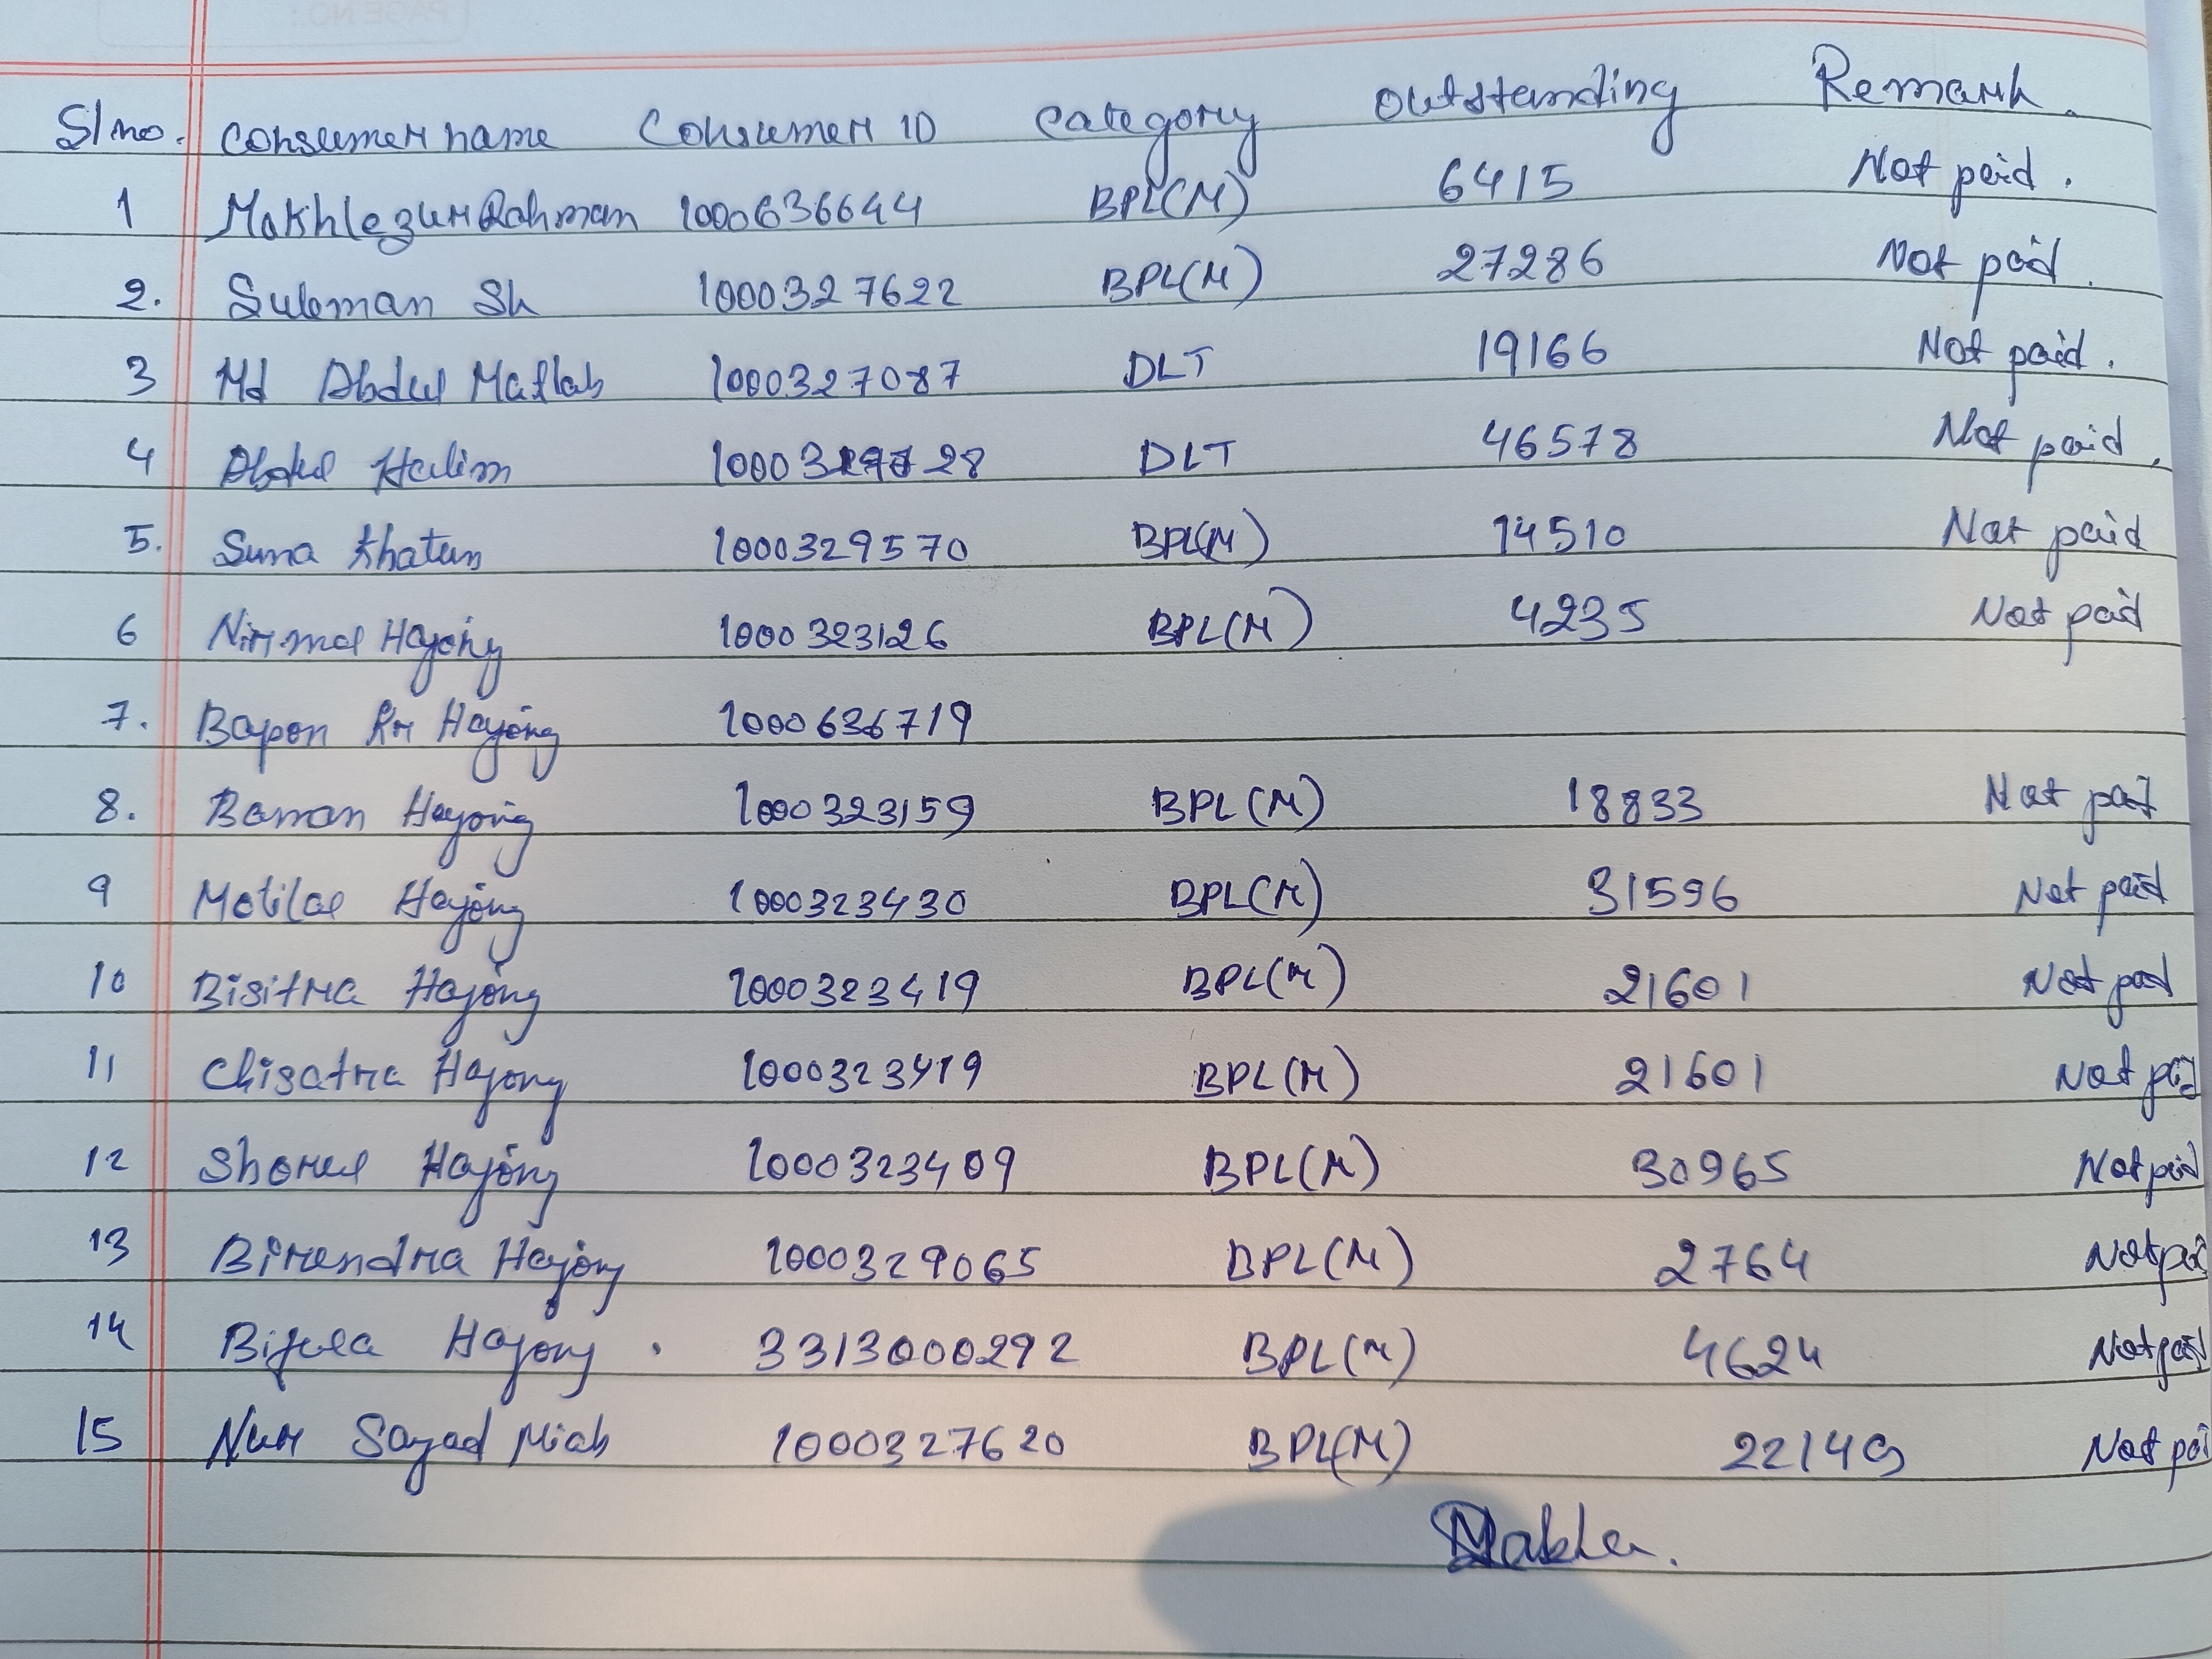 Sl no. Consumer name Consumer ID Category Outstanding Remark.
1 Mokhlezur Rahman 1000636644 BPL(M) 6415 Not paid.
2. Suleman Sk 1000327622 BPL(M) 27286 Not paid.
3 Md Abdul Matlab 1000327087 DLT 19166 Not paid.
4 Abdul Halim DLT 46578 Not paid.
5. Suna Khatun 1000329570 BPL(M) 14510 Not paid
6 Nirmal Hajong 1000323126 BPL(M) 4235 Not paid
7. Bapon Kr Hajong 1000636719
8. Baman Hajong 1000323159 BPL(M) 18833 Not paid
9 Motilal Hajong 1000323430 BPL(M) 31596 Not paid
10 Bisitra Hajong 1000323419 BPL(M) 21601 Not paid
11 Chisatra Hajong 1000323419 BPL(M) 21601 Not paid
12 Shorel Hajong 1000323409 BPL(M) 30965 Not paid
13 Birendra Hajong 1000329065 BPL(M) 2764 Not pai
14 Hajong. 3313000292 BPL(M) 4624 Not paid
15 Nur Sayad Miah 1000327620 BPL(M) 22149 Not pai